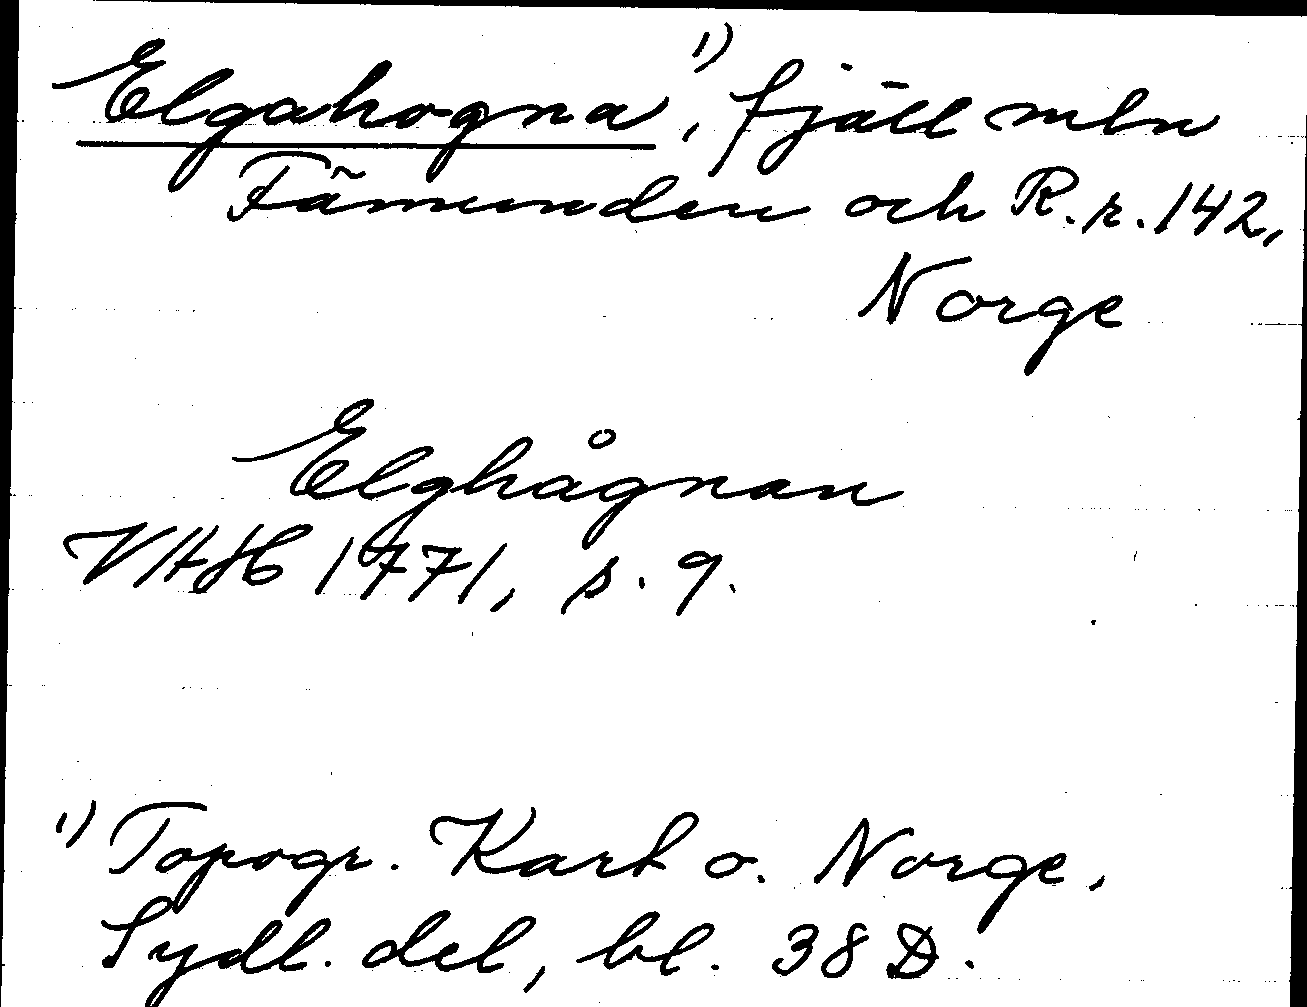 Elgahogna¹⁾, fjäll mln
Fämunden och R.r. 142,
Norge
Elghågnan
VHH 1771, s. 9.
¹⁾ Topogr. Kart o. Norge,
Sydl. del, bl. 38 D.